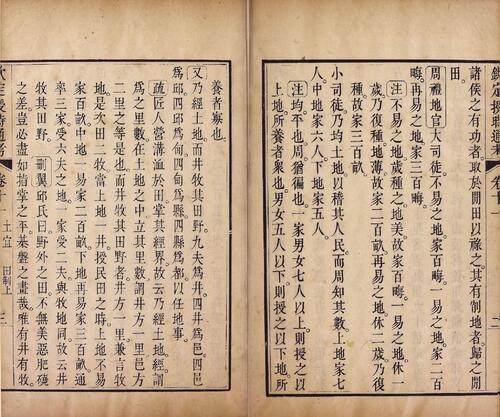 諸侯之有功者取於閒田以祿之其有削地者歸之閒
田
周禮地官大司徒不易之地家百畮一易之地家二百
畮再易之地家三百畮
注不易之地歲種之地美故家百畮一易之地休一
歲乃復種地薄故家二百畝再易之地休二歲乃復
種故家三百畝
小司徒乃均土地以稽其人民而周知其數上地家七
人中地家六人下地家五人
注均平也周猶徧也一家男女七人以上則授之以
上地所養者衆也男女五人以下則授之以下地所
養者寡也
又乃經土地而井牧其田野九夫爲井四井爲邑四邑
爲邱四邱爲甸四甸爲縣四縣爲都以任地事
疏匠人營溝洫於田掌其經界故云乃經土地經謂
爲之里數在土地之中立其里數謂井方一里邑方
二里之等是也而井牧其田野者井方一里兼言牧
地是次田二牧當上地一井授民田之時上地不易
家百畝中地一易家二百畝下地再易家三百畝通
率三家受六夫之地一家受二夫與牧地同故云井
牧其田野 刪翼邱氏曰野外之田不無美惡肥磽
之差豈必盡如指掌之平棊盤之畫哉唯有井有牧
定授時通考 卷十一 土宜 田制上